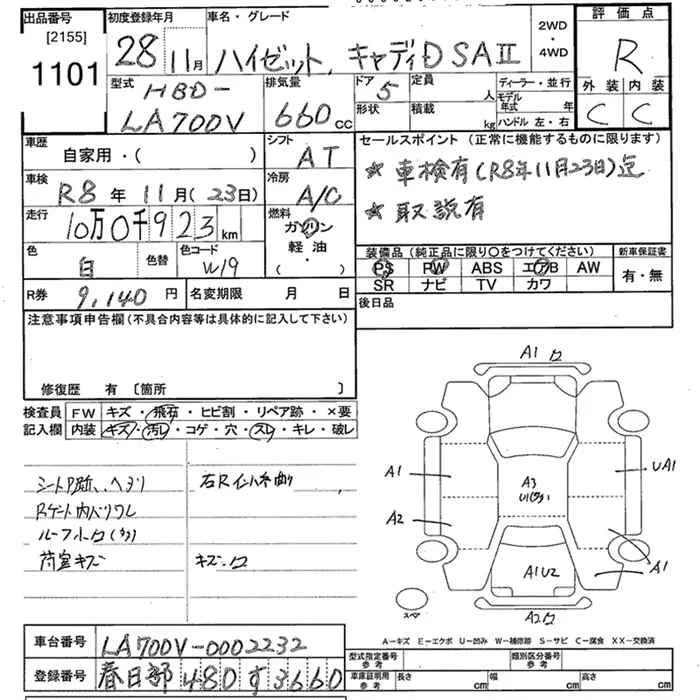 出品番号 初度登録年月 車名・グレード 2WD・4WD 評価点
[2155]
1101 28 11月 ハイゼット キャディD SAⅡ R
型式 排気量 ドア 定員 ディーラー・並行 外装 内装
HBD- 5 人 モデル年式 年
LA700V 660cc 形状 積載 kg ハンドル 左・右 C C
車歴 シフト セールスポイント (正常に機能するものに限ります)
自家用・( ) AT
車検 冷房 ★車検有(R8年11月23日)迄
R8年11月(23日) A/C
走行 燃料 ★取説有
10万0千923km ガソリン
軽油
・
( )
色 色替 色コード 装備品 (純正品に限り〇をつけてください) 新車保証書
白 W19 PS PW ABS エアB AW 有・無
SR ナビ TV カワ
R券 9,140円 名変期限 月 日 後日品
注意事項申告欄(不具合内容等は具体的に記入して下さい)
修復歴 有 〔箇所 〕
検査員 FW キズ・飛石・ヒビ割・リペア跡・×要
記入欄 内装 キズ・汚レ・コゲ・穴・スレ・キレ・破レ
荷室キズ
A1
A1
A2
A3
UA1
A1
A1U2
A2
スペア
A-キズ E-エクボ U-凹み W-補修跡 S-サビ C-腐食 XX-交換済
車台番号 LA700V-0002232
登録番号 春日部 480 す 3660
型式指定番号 参考 類別区分番号 参考
車庫証明用 参考 長さ cm 幅 cm 高さ cm